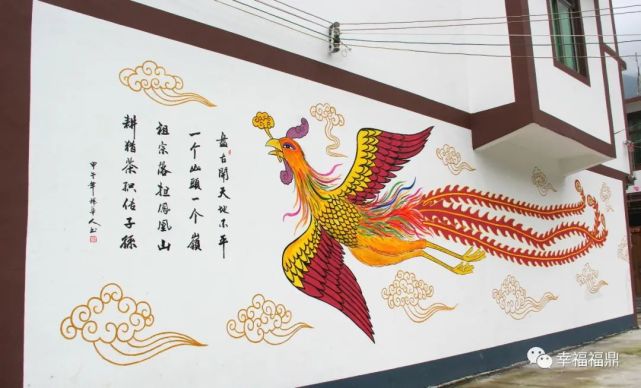 盘古開天地不平
一个山頭一个嶺
祖宗落担鳳凰山
耕猎茶织传子孫
甲午年
幸福福鼎